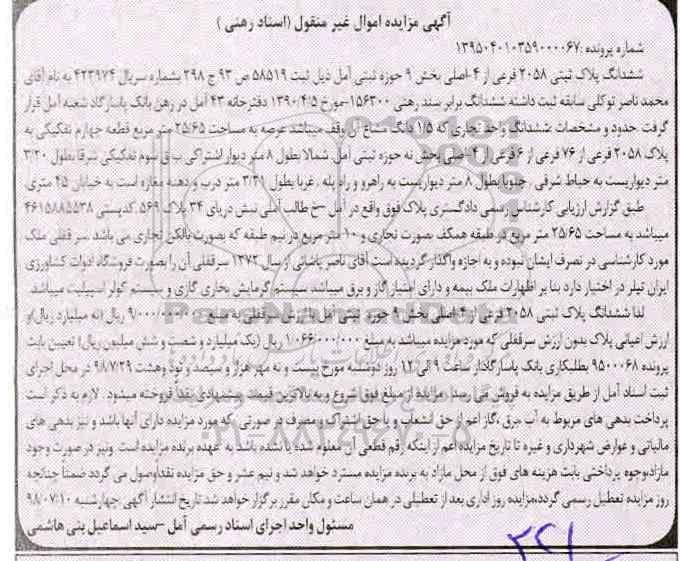 آگهی مزایده اموال غیر منقول (اسناد رهنی )
شماره پرونده :۱۳۹۵۰۴۰۱۰۳۵۹۰۰۰۰۶۷
ششدانگ پلاک ثبتی ۲۰۵۸ فرعی از ۴-اصلی بخش ۹ حوزه ثبتی آمل ذیل ثبت ۵۸۵۱۹ ص ۹۳ ج ۲۹۸ بشماره سریال ۴۲۳۹۷۴ به نام آقای
محمد ناصر توکلی سابقه ثبت داشته ششدانگ برابر سند رهنی ۱۵۶۳۰۰-مورخ ۱۳۹۰/۴/۵ دفترخانه ۴۳ آمل در رهن بانک پاسارگاد شعبه آمل قرار
گرفت حدود و مشخصات ششدانگ واحد تجاری که ۱/۵ دانگ مشاع آن وقف میباشد عرصه به مساحت ۲۵/۶۵ متر مربع قطعه چهارم تفکیکی به
پلاک ۲۰۵۸ فرعی از ۷۶ فرعی از ۶ فرعی از ۴ اصلی بخش نه حوزه ثبتی آمل. شمالا بطول ۸ متر دیوار اشتراکی ب ق سوم تفکیکی شرقا بطول ۳/۲۰
متر دیواریست به حیاط شرقی . جنوبا بطول ۸ متر دیواریست به راهرو و راه پله . غربا بطول ۳/۲۱ متر درب و دهنه مغازه است به خیابان ۴۵ متری.
طبق گزارش ارزیابی کارشناس رسمی دادگستری پلاک فوق واقع در آمل –خ طالب آملی نبش دریای ۳۴ پلاک ۵۶۹ کدپستی ۴۶۱۵۸۸۵۵۳۸
میباشد به مساحت ۲۵/۶۵ متر مربع در طبقه همکف بصورت تجاری و ۱۰ متر مربع در نیم طبقه که بصورت بالکن تجاری می باشد .سرقفلی ملک
مورد کارشناسی در تصرف ایشان نبوده و به اجازه واگذار گردیده است آقای ناصر پاشائی از سال ۱۳۷۲ سرقفلی آن را بصورت فروشگاه ادوات کشاورزی
ایران تیلر در اختیار دارد بنا بر اظهارات ملک بیمه و دارای امتیاز گاز و برق میباشد سیستم گرمایش بخاری گازی و سیستم کولر اسپیلیت میباشد.
لذا ششدانگ پلاک ثبتی ۲۰۵۸ فرعی از ۴-اصلی بخش ۹ حوزه ثبتی آمل با ارزش سرقفلی به مبلغ ۹/۰۰۰/۰۰۰/۰۰۰ ریال (نه میلیارد ریال)و
ارزش اعیانی پلاک بدون ارزش سرقفلی که مورد مزایده میباشد به مبلغ ۱/۰۶۶/۰۰۰/۰۰۰ ریال (یک میلیارد و شصت و شش میلیون ریال) تعیین بابت
پرونده ۹۵۰۰۰۶۸ بطلبکاری بانک پاسارگاداز ساعت ۹ الی ۱۲ روز دوشنبه مورخ بیست و نه مهر هزار و سیصد و نود وهشت ۹۸/۷/۲۹ در محل اجرای
ثبت اسناد آمل از طریق مزایده به فروش می رسد. مزایده از مبلغ فوق شروع و به بالاترین قیمت پیشنهادی نقدا فروخته میشود . لازم به ذکر است
پرداخت بدهی های مربوط به آب ،برق ،گاز اعم از حق انشعاب و یا حق اشتراک و مصرف در صورتی که مورد مزایده دارای آنها باشد و نیز بدهی های
مالیاتی و عوارض شهرداری و غیره تا تاریخ مزایده اعم از اینکه رقم قطعی آن معلوم شده یا نشده باشد به عهده برنده مزایده است .ونیز در صورت وجود
مازاد،وجوه پرداختی بابت هزینه های فوق از محل مازاد به برنده مزایده مسترد خواهد شد و نیم عشر و حق مزایده نقدا وصول می گردد ضمناً چنانچه
روز مزایده تعطیل رسمی گردد،مزایده روز اداری بعد از تعطیلی در همان ساعت و مکان مقرر برگزار خواهد شد تاریخ انتشار آگهی چهارشنبه ۹۸/۰۷/۱۰
مسئول واحد اجرای اسناد رسمی آمل –سید اسماعیل بنی هاشمی
ParsNamadData
۰۲۱-۸۸۳۴۹۶۷۰-۵